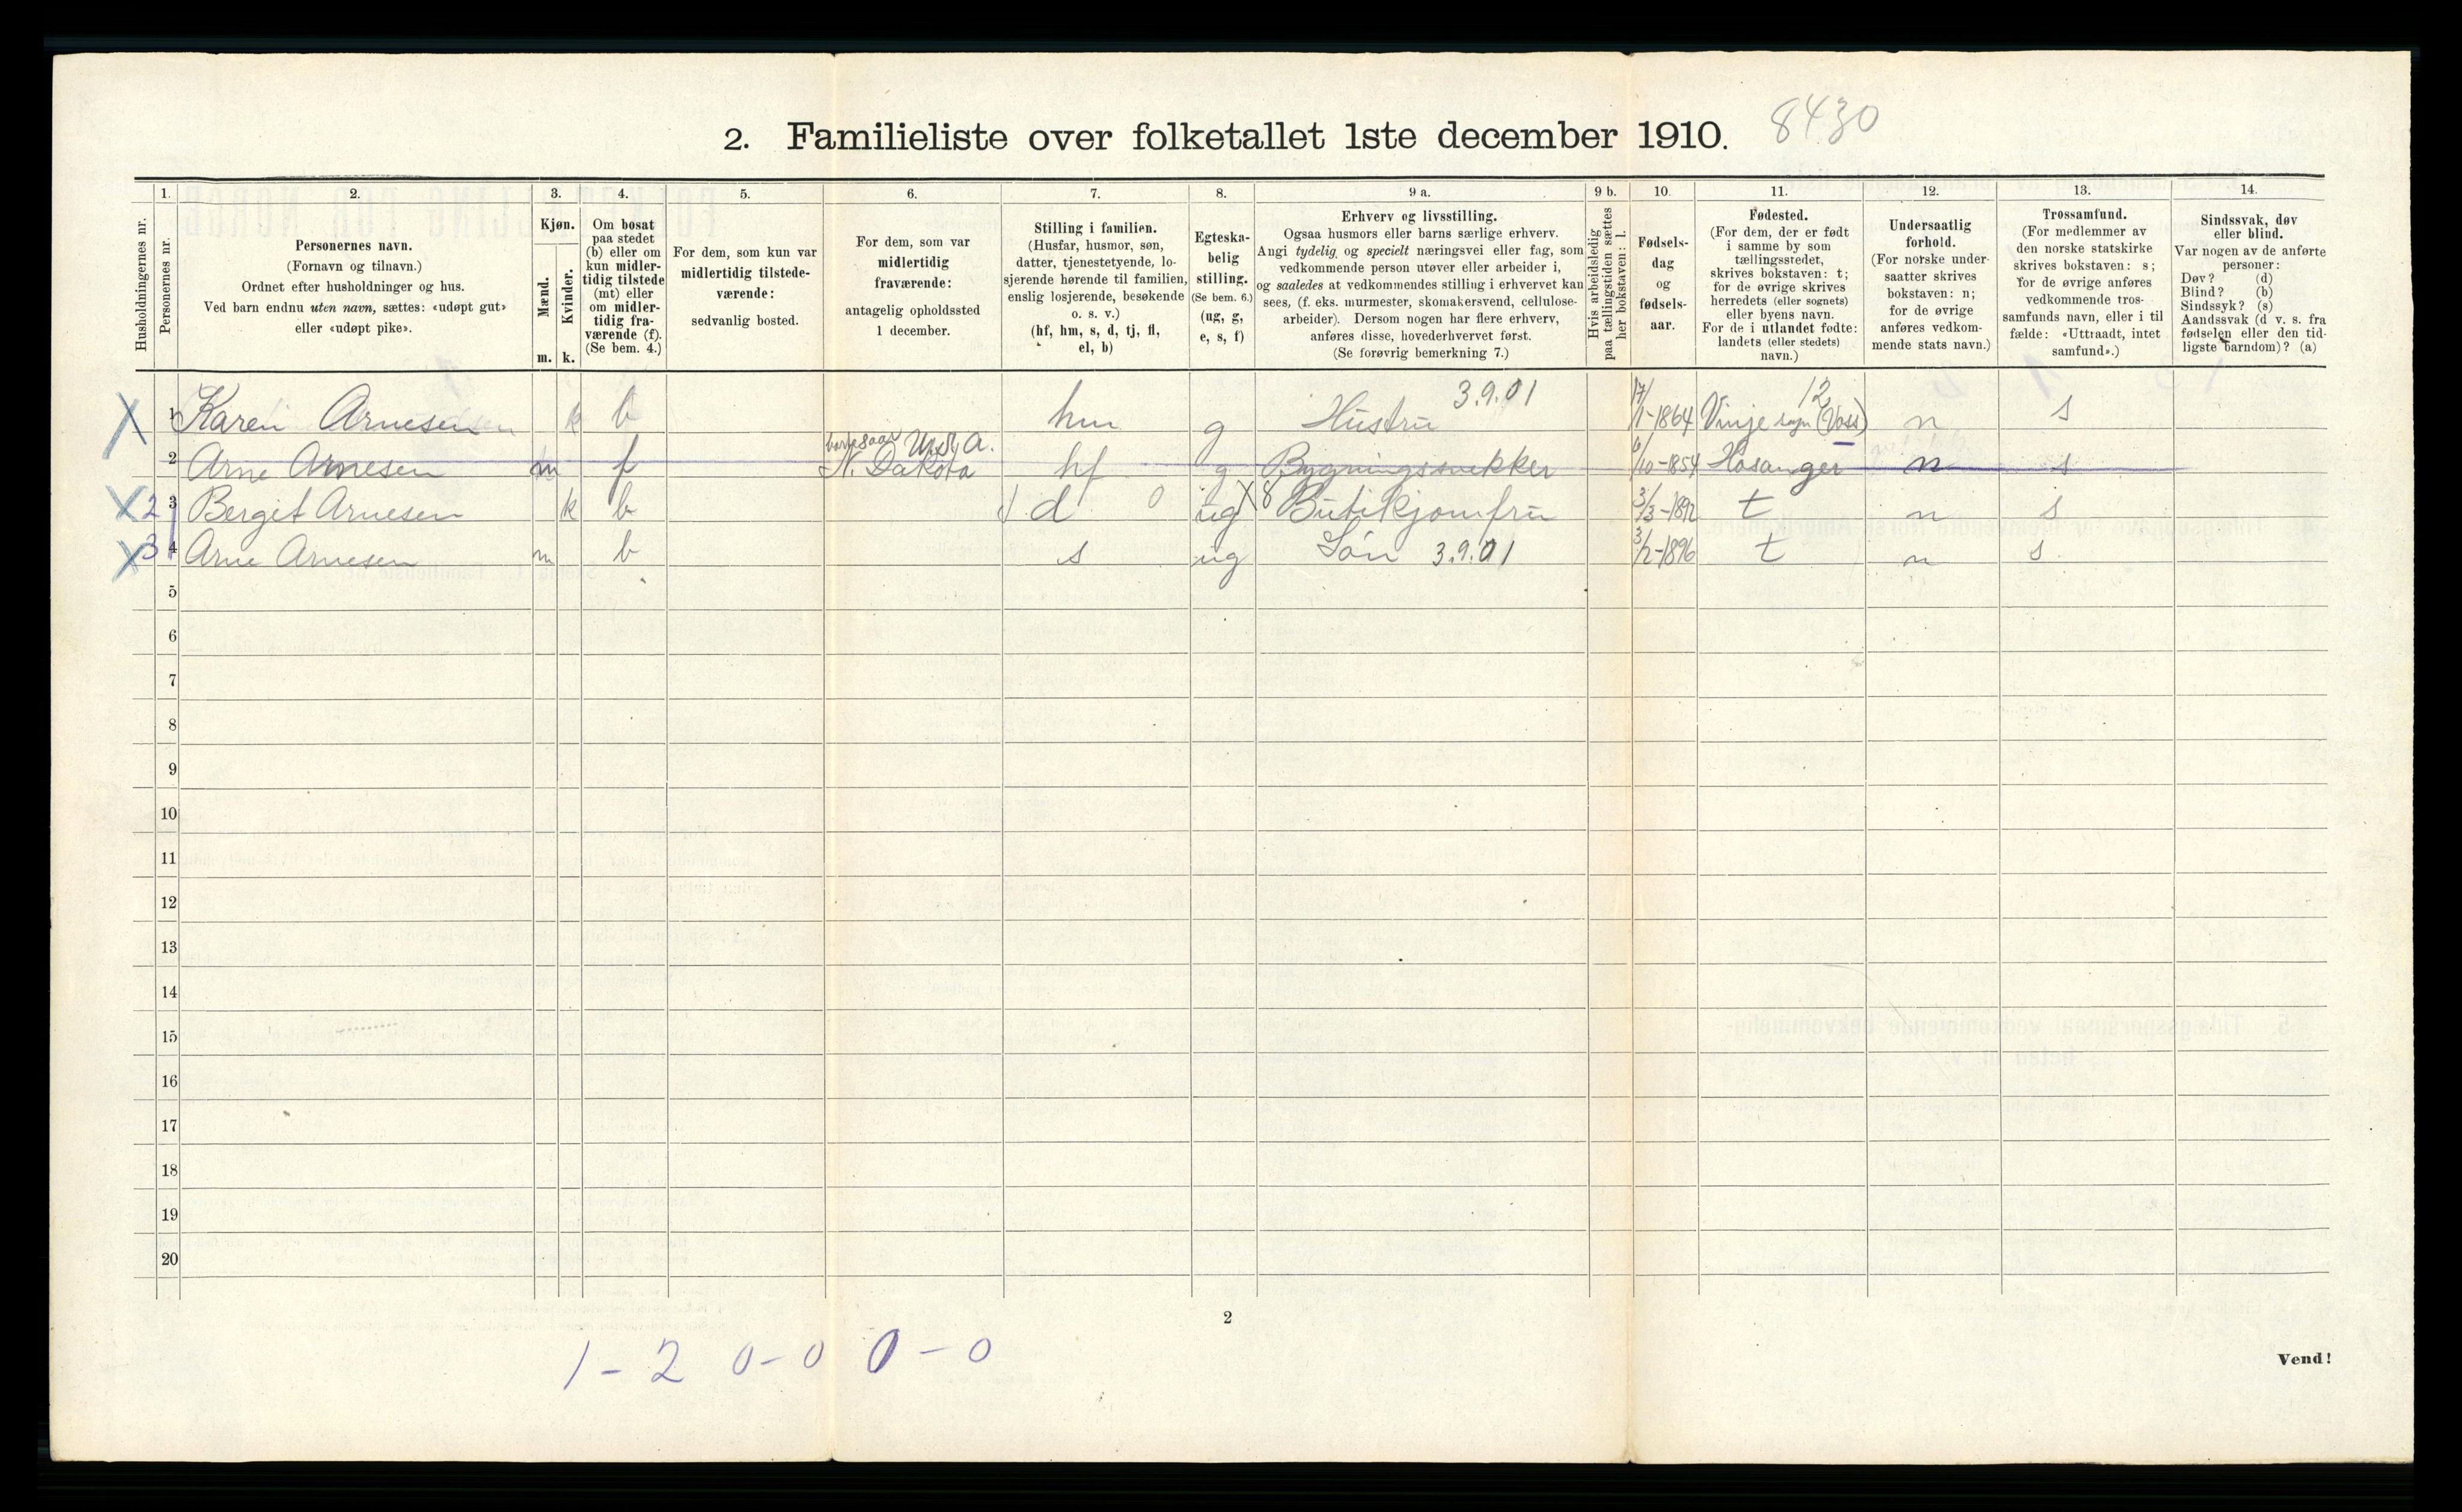 2. Familieliste over folketallet 1ste december 1910. 8430
Husholdningernes nr.
1. Personernes nr.
2.
Personernes navn.
(Fornavn og tilnavn.)
Ordnet efter husholdninger og hus.
Ved barn endnu uten navn, sættes: «udøpt gut»
eller «udøpt pike».
3.
Kjøn.
Mænd.
Kvinder.
m. k.
4.
Om bosat
paa stedet
(b) eller om
kun midler-
tidig tilstede
(mt) eller
om midler-
tidig fra-
værende (f).
(Se bem. 4.)
5.
For dem, som kun var
midlertidig tilstede-
værende:
sedvanlig bosted.
6.
For dem, som var
midlertidig
fraværende:
antagelig opholdssted
1 december.
7.
Stilling i familien.
(Husfar, husmor, søn,
datter, tjenestetyende, lo-
sjerende hørende til familien,
enslig losjerende, besøkende
o. s. v.)
(hf, hm, s, d, tj, fl,
el, b)
8.
Egteska-
belig
stilling.
(Se bem. 6.)
(ug, g,
e, s, f)
9 a.
Erhverv og livsstilling.
Ogsaa husmors eller barns særlige erhverv.
Angi tydelig og specielt næringsvei eller fag, som
vedkommende person utøver eller arbeider i,
og saaledes at vedkommendes stilling i erhvervet kan
sees, (f. eks. murmester, skomakersvend, cellulose-
arbeider). Dersom nogen har flere erhverv,
anføres disse, hovederhvervet først.
(Se forøvrig bemerkning 7.)
9 b.
Hvis arbeidsledig
paa tællingstiden sættes
her bokstaven: l.
10.
Fødsels-
dag
og
fødsels-
aar.
11.
Fødested.
(For dem, der er født
i samme by som
tællingsstedet,
skrives bokstaven: t;
for de øvrige skrives
herredets (eller sognets)
eller byens navn.
For de i utlandet fødte:
landets (eller stedets)
navn.)
12.
Undersaatlig
forhold.
(For norske under-
saatter skrives
bokstaven: n;
for de øvrige
anføres vedkom-
mende stats navn.)
13.
Trossamfund.
(For medlemmer av
den norske statskirke
skrives bokstaven: s;
for de øvrige anføres
vedkommende tros-
samfunds navn, eller i til
fælde: «Uttraadt, intet
samfund».)
14.
Sindssvak, døv
eller blind.
Var nogen av de anførte
personer:
Døv? (d)
Blind? (b)
Sindssyk? (s)
Aandssvak (d v. s. fra
fødselen eller den tid-
ligste barndom)? (a)
X 1 Karen Arnesen k b hm g Hustru 3.9.01 17/1-1864 Vinje sogn (Voss) 12 n s
2 Arne Arnesen m f U.S.A. N. Dakota hf g Bygningssnekker 6/10-1854 Hosanger n s
X 2 3 Berget Arnesen k b d 0 ug X8 Butikjomfru 3/3-1892 t n s
X 3 4 Arne Arnesen m b s ug Søn 3.9.01 3/2-1896 t n s
5
6
7
8
9
10
11
12
13
14
15
16
17
18
19
20
2
1-2 0-0 0-0
Vend!